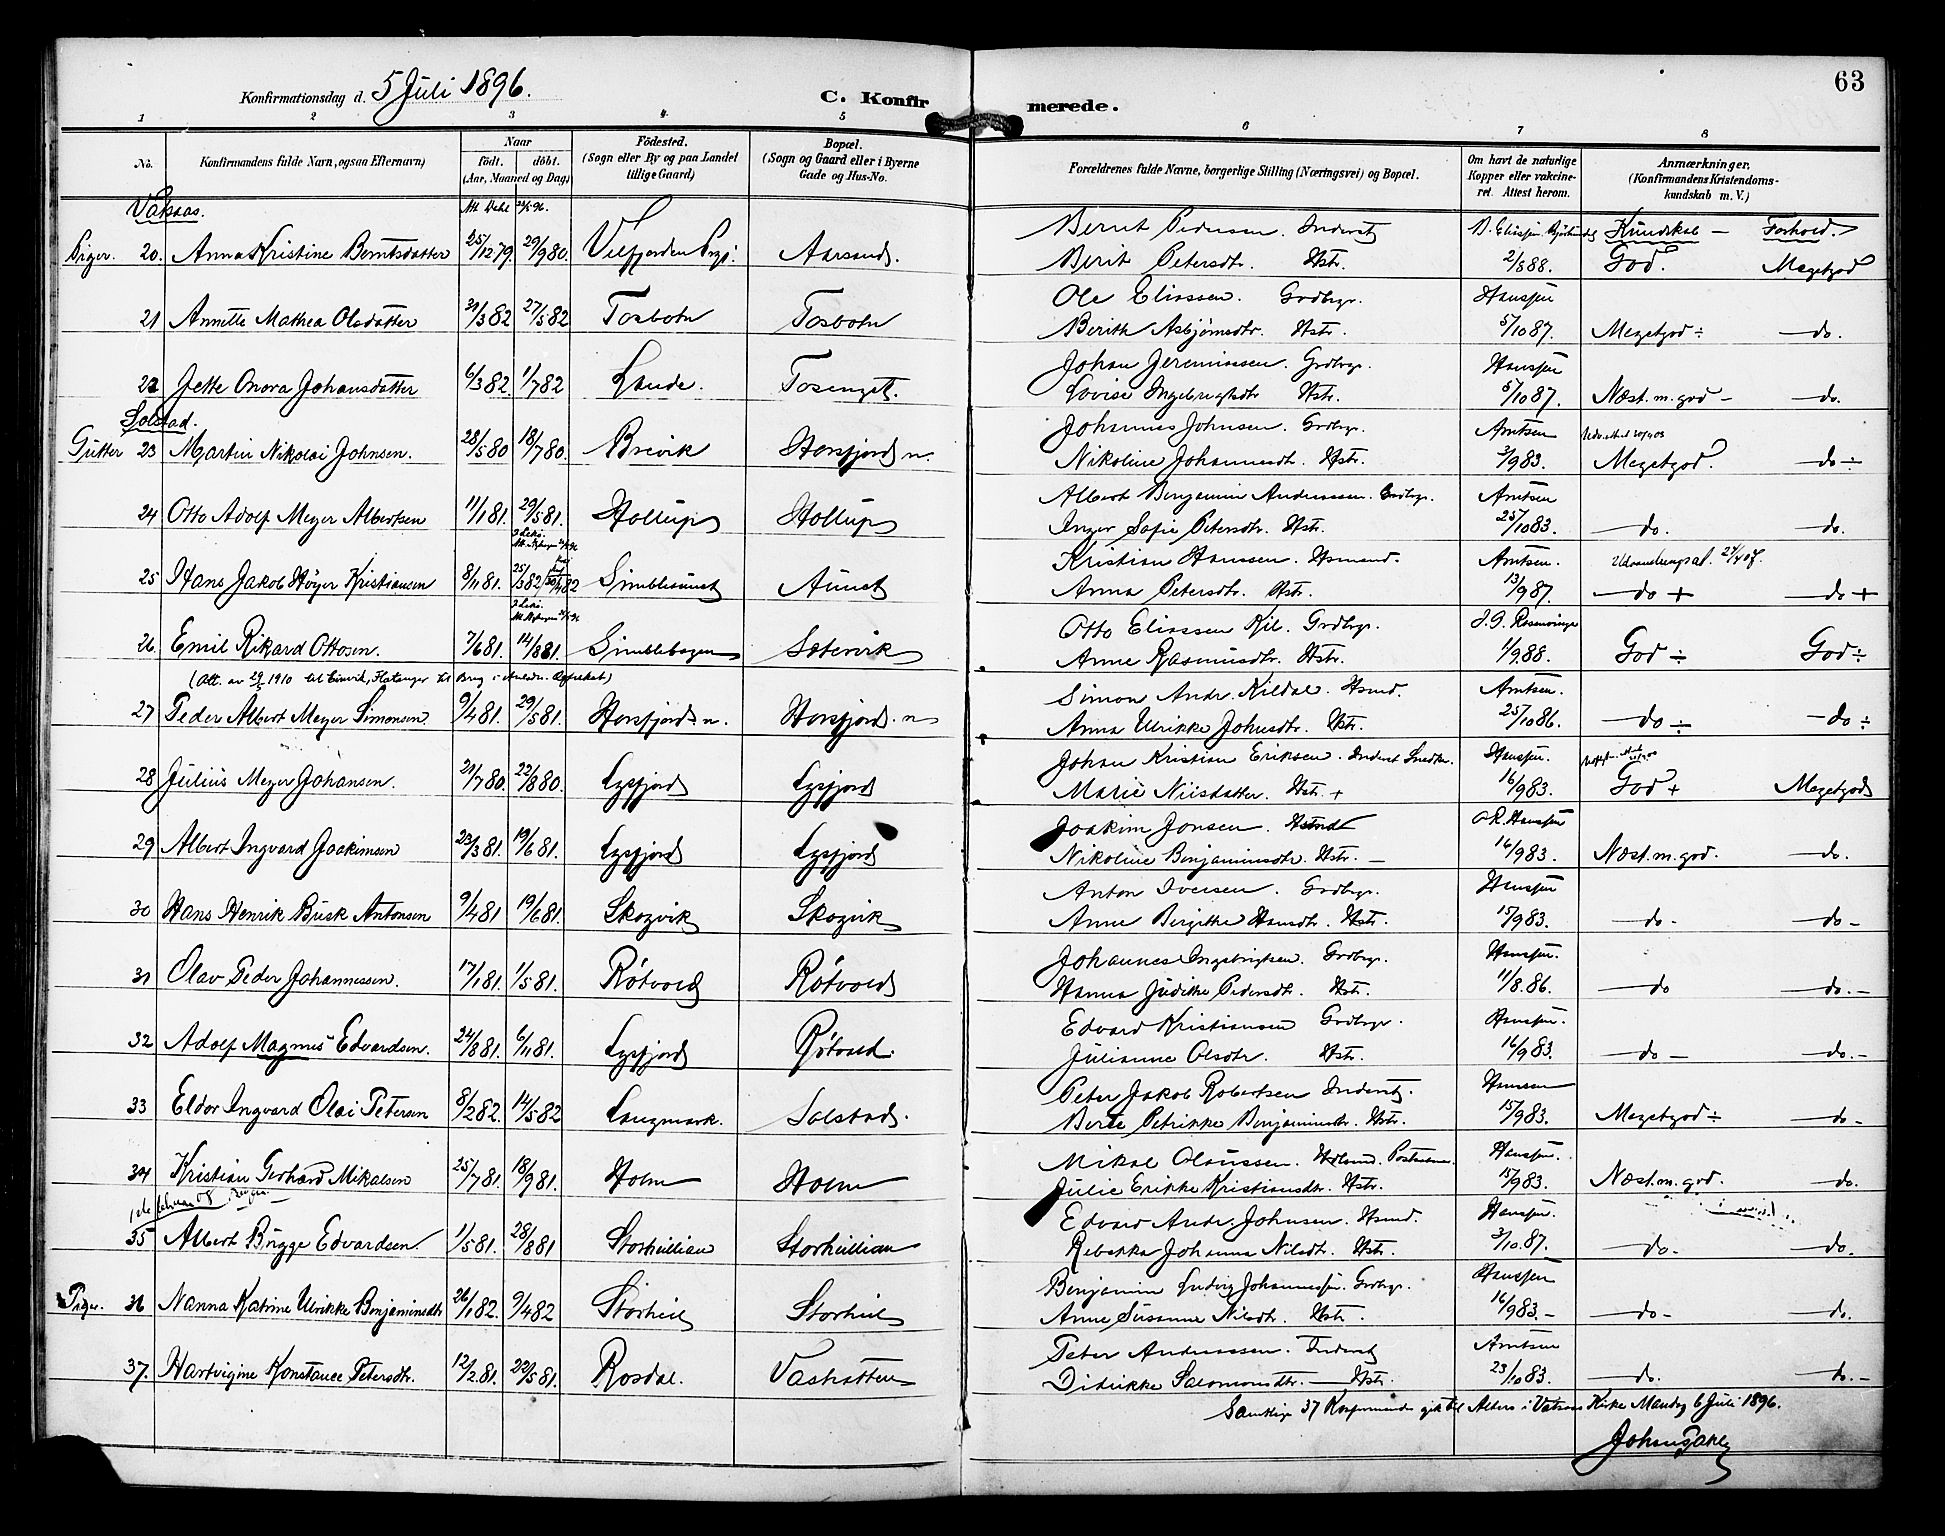 63
Konfirmationsdag d. 5 Juli 1896.
C. Konfirmerede.
1 2 3 4 5 6 7 8
No. Konfirmandens fulde Navn, ogsaa Efternavn) Naar födt. döbt. (Aar, Maaned og Dag) Födested. (Sogn eller By og paa Landet tillige Gaard) Bopæl. (Sogn og Gaard eller i Byerne Gade og Hus-No. Forældrenes fulde Navne, borgerlige Stilling (Næringsvei) og Bopæl. Om havt de naturlige Kopper eller vakcineret. Attest herom. Anmærkninger, (Konfirmandens Kristendomskundskab m. V.)
Vaksaas.
Kundskab — Forhold.
Piger. 20. Anna Kristine Berntsdatter 25/12 79. 29/9 80. Velfjorden Aarsand. Bernt Pedersen. Inderst
Berit Petersdtr. Hstr. 2/8 88. God. Megetgod
21 Annette Mathea Olsdatter 31/3 82 27/5 82 Tosbotn Tosbotn Ole Eliassen. Grdbrgr. Hanssen
Berith Asbjørnsdtr. Hstr. 5/10 87. Megetgod ÷ — do.
22 Jette Onora Johansdatter 6/3 82. 1/7 82 Lande. Tosenget. Johan Jeremiassen. Grdbrgr. Hanssen
Lovise Ingebrigtsdtr Hstr. 5/10 87. Næst. m. god — do.
Solstad.
Gutter 23 Martin Nikolai Johnsen. 28/5 80 18/7 80. Brevik Horsfjord n. Johannes Johnsen. Grdbrgr. Arntsen
Nikoline Johannesdtr. Hstr. 3/9 83. Megetgod. — do ÷
24 Otto Adolf Meyer Albertsen 11/1 81. 29/5 81. Hollup Hollup Albert Benjamin Andreassen. Grdbrgr. Arntsen
Inger Sofie Petersdtr. Hstr. 25/10 83. — do. — do.
25 Hans Jakob Høyer Kristiansen 8/11 81. 25/3 82 Simblesund Aunet Kristian Hanssen. Hsmand. Arntsen.
Anna Petersdtr. Hstr. 13/9 87. — do + — do +
26. Emil Rikard Ottosen. 7/6 81. 14/8 81. Simblebogen Sætervik Otto Eliassen Kil. Grdbrgr.
Anne Rasmusdtr. Hstr. 1/9 88. God ÷ God ÷
27 Peder Albert Meyer Simonsen. 9/4 81. 29/5 81. Horsfjord n. Horsfjord n Simon Andr. Kildal. Hsmd. Arntsen.
Anna Ulrikke Johnsdtr. Hstr. 25/10 86. — do ÷ — do ÷
28 Julius Meyer Johansen. 21/7 80. 22/8 80. Lysfjord Lysfjord Johan Kristian Eriksen. Inderst Snedker. Hanssen.
Marie Nilsdatter. Hstr. + 16/9 83. God + Megetgod
29 Albert Ingvard Joakimsen 23/3 81. 19/6 81. Lysfjord Lysfjord Joakim Jonsen. Hsmd Hanssen
Nikoline Benjaminsdtr. Hstr. — 16/9 83. Næst. m. god. — do.
30 Hans Henrik Busk Antonsen 9/4 81 19/6 81. Skogvik Skogvik Anton Iversen. Grdbrgr. Hanssen
Anne Bergitte Hansdtr. Hstr. 15/9 83. — do — — do —
31 Olav Peder Johannessen. 17/1 81. 1/5 81. Røtvold Røtvold Johannes Ingebrigtsen. Grdbrgr. Hanssen.
Hanna Judithe Pedersdtr. Hstr. 11/8. 86. — do — do. —
32 Adolf Magnus Edvardsen. 24/8 81. 6/11 81. Lysfjord Røtvold. Edvard Kristiansen Grdbrgr. Hanssen.
Julianne Olsdtr. Hstr. 16/9 83. — do — — do. —
33 Eldor Ingvard Olai Petersen 8/2 82. 14/5 82 Langmark. Solstad. Peter Jakob Robertsen Inderst. Hanssen
Berte Petrikke Benjaminsdtr. Hstr. 15/9 83. Megetgod ÷ — do —
34 Kristian Gerhard Mikalsen 25/7 81. 18/9 81. Holm Holm Mikal Olaussen. Hanssen.
Julie Erikke Kristiansdtr. Hstr. 15/9 83. Næst. m. god. — do.
35 Albert Brügge Edvardsen. 1/5 81. 28/8 81 Storhullian Storhullian Edvard Andr. Johnsen. Hsmd. Hanssen.
Rebekka Johanna Nilsdtr. Hstr. 3/10. 87. — do. — do.
Piger. 36 Nanna Katrine Ulrikke Benjaminsdtr 26/1 82. 9/4 82 Storheil Storheil Benjamin Ludvig Johannessen. Grdbrgr. Hanssen
Anne Susanne Nilsdtr. Hstr. 16/9 83. — — do — — do.
37. Hartvigine Konstance Petersdtr. 12/2 81. 22/5 81. Rosdal. Vashatten Peter Andreassen. Inderst Arntsen
Didrikke Salomonsdtr. — Hstr. 23/10 83. — do. — do. —
Samtlige 37 Konfirmander gik til Alters i Vatsaas Kirke Mandag 6 Juli 1896.